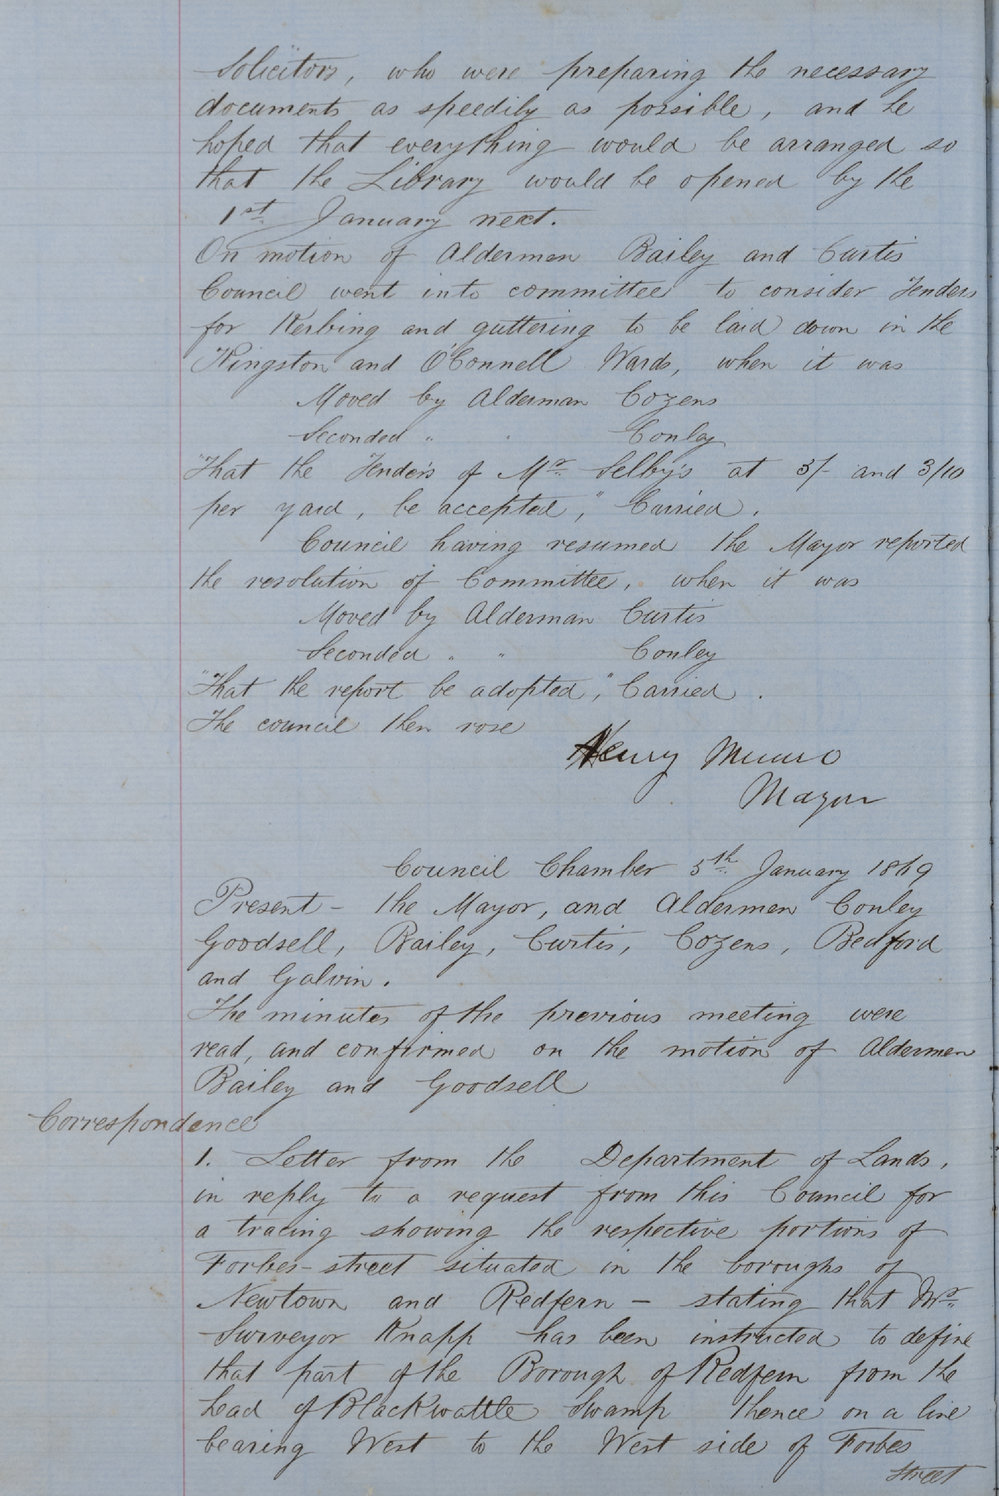 Solicitors, who were preparing the necessary
documents as speedily as possible, and he
hoped that everything would be arranged so
that the Library would be opened by the
1st January next.
On motion of Aldermen Bailey and Curtis
Council went into committee to consider Tenders
for Kerbing and guttering to be laid down in the
Kingston and O'Connell Wards, when it was
Moved by Alderman Cozens
Seconded " " Conley
"That the Tenders of Mr Selby's at 3/- and 3/10
per yard, be accepted," Carried.
Council having resumed the Mayor reported
the resolution of Committee, when it was
Moved by Alderman Curtis
Seconded " " Conley
"That the report be adopted," Carried.
The council then rose
Henry Munro
Mayor
Council Chamber 5th January 1869
Present - the Mayor, and Aldermen Conley
Goodsell, Bailey, Curtis, Cozens, Bedford
and Galvin.
The minutes of the previous meeting were
read, and confirmed on the motion of Aldermen
Bailey and Goodsell
Correspondence
1. Letter from the Department of Lands,
in reply to a request from this Council for
a tracing showing the respective portions of
Forbes-street situated in the boroughs of
Newtown and Redfern - stating that Mr
Surveyor Knapp has been instructed to define
that part of the Borough of Redfern from the
head of Blackwattle Swamp thence on a line
bearing West to the West side of Forbes
Street